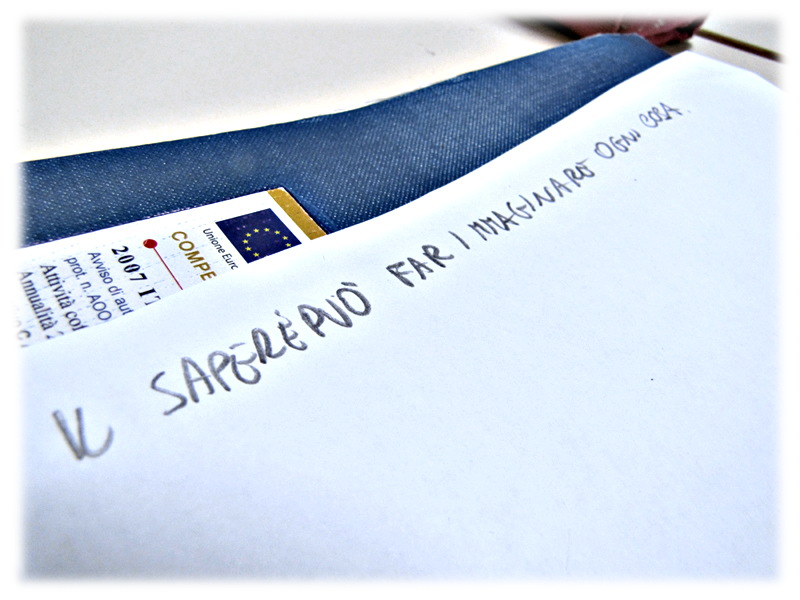 IL SAPERE PUÒ FAR IMMAGINARE OGNI COSA.
Unione Euro
COMPE
2007 IT
Avviso di aut
prot. n. AOO
Attività cof
Annualità 2